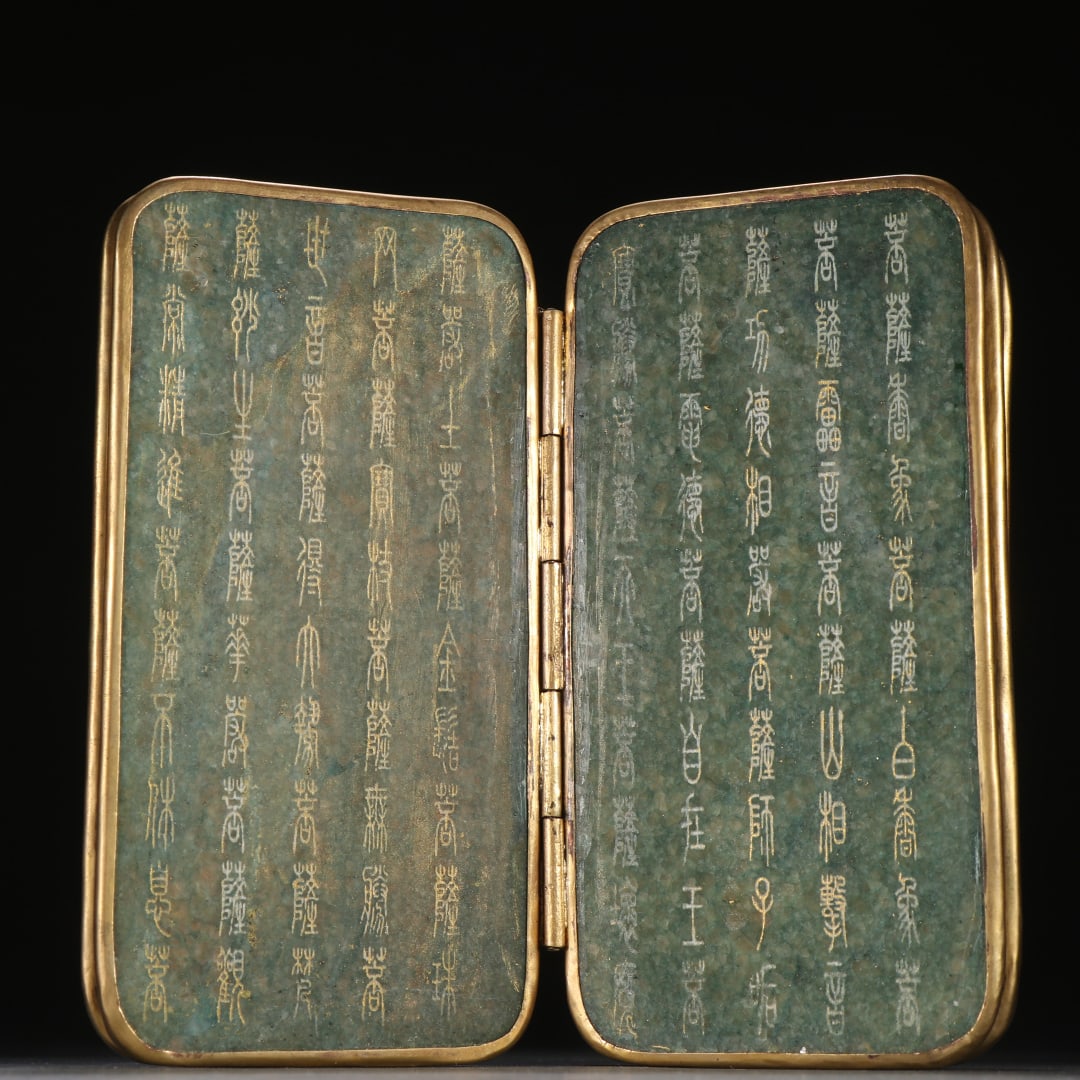 寶勝菩薩天王菩薩壞魔
菩薩電德菩薩自在王菩
薩功德相嚴菩薩師子吼
菩薩雷音菩薩山相擊音
菩薩香象菩薩白香象菩
薩常精進菩薩不休息菩
薩妙生菩薩華嚴菩薩觀
世音菩薩得大勢菩薩梵
网菩薩寶杖菩薩無勝菩
薩嚴土菩薩金髻菩薩珠